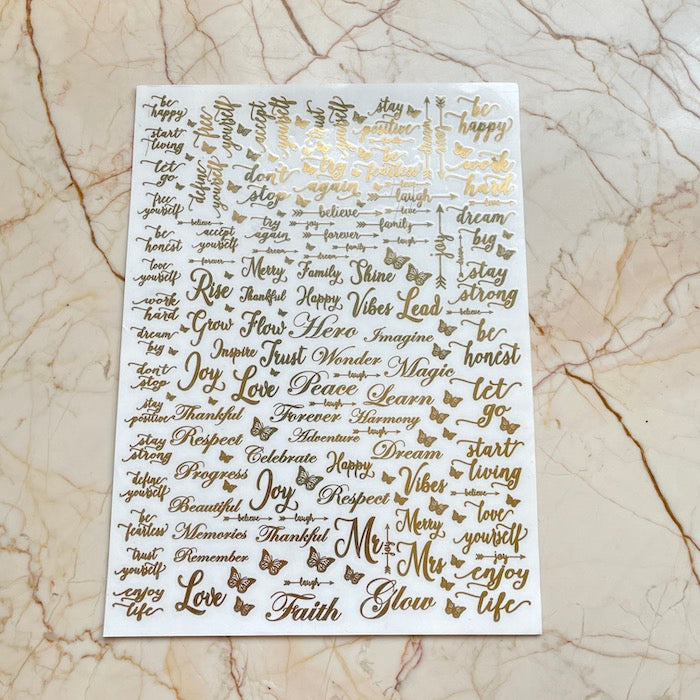 be
happy
start
living
let
go
free
yourself
be
honest
love
yourself
work
hard
dream
big
don't
stop
stay
positive
stay
strong
define
yourself
be
fearless
trust
yourself
enjoy
life
free
yourself
define
yourself
accept
yourself
trust
yourself
don't
stop
try
again
stay
positive
be
fearless
dream
love
laugh
believe
love
believe
accept
yourself
try
again
joy
forever
family
laugh
family
dream
dream
forever
joy
be
happy
work
hard
dream
big
stay
strong
believe
be
honest
let
go
start
living
believe
love
yourself
joy
enjoy
life
Merry
Family
Shine
Rise
Thankful
Happy
Vibes
Lead
Grow
Flow
Hero
Imagine
Inspire
Trust
Wonder
Magic
laugh
Joy
Love
Peace
Learn
Thankful
Forever
Harmony
laugh
Respect
Adventure
Dream
Celebrate
Progress
Happy
Vibes
Joy
Respect
Beautiful
believe
laugh
Merry
Memories
Thankful
Mr
Mrs
Remember
laugh
Love
Faith
Glow